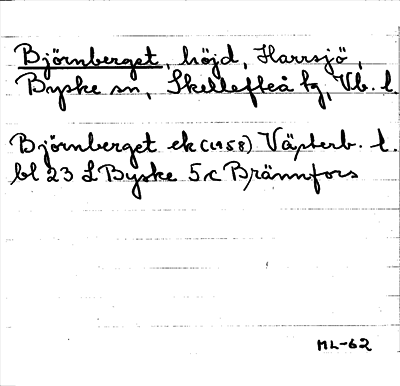 Björnberget, höjd, Harrsjö,
Byske sn, Skellefteå tg, Vb. l.
Björnberget ek (1958) Västerb. l.
bl 23 L Byske 5 c Brännfors
ML-62